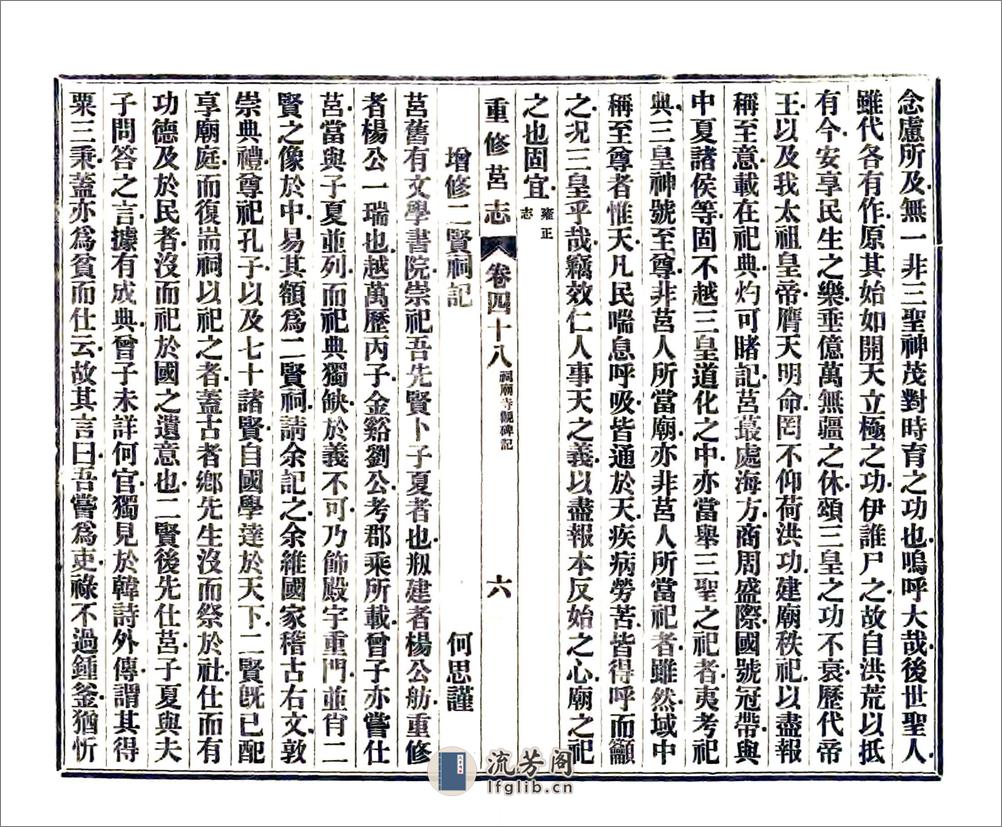 念慮所及無一非三聖神茂對時育之功也嗚呼大哉後世聖人
雖代各有作原其始如開天立極之功伊誰尸之故自洪荒以抵
有今安享民生之樂垂億萬無疆之休頌三皇之功不衰歷代帝
王以及我太祖皇帝膺天明命罔不仰荷洪功建廟秩祀以盡報
稱至意載在祀典灼可睹記莒蕞處海方商周盛際國號冠帶與
中夏諸侯等固不越三皇道化之中亦當舉三聖之祀者夷考祀
典三皇神號至尊非莒人所當廟亦非莒人所當祀者雖然域中
稱至尊者惟天凡民喘息呼吸皆通於天疾病勞苦皆得呼而籲
之況三皇乎哉竊效仁人事天之義以盡報本反始之心廟之祀
之也固宜 雍正志
重修莒志 卷四十八 祠廟寺觀碑記 六
增修二賢祠記 何思謹
莒舊有文學書院崇祀吾先賢卜子夏者也剏建者楊公舫重修
者楊公一瑞也越萬歷丙子金谿劉公考郡乘所載曾子亦嘗仕
莒當與子夏並列而祀典獨缺於義不可乃飾殿宇重門並肖二
賢之像於中易其額爲二賢祠請余記之余維國家稽古右文敦
崇典禮尊祀孔子以及七十諸賢自國學達於天下二賢旣已配
享廟庭而復耑祠以祀之者蓋古者鄉先生沒而祭於社仕而有
功德及於民者沒而祀於國之遺意也二賢後先仕莒子夏與夫
子問答之言據有成典曾子未詳何官獨見於韓詩外傳謂其得
粟三秉蓋亦爲貧而仕云故其言曰吾嘗爲吏祿不過鍾釜猶忻
流芳阁
lfglib.cn